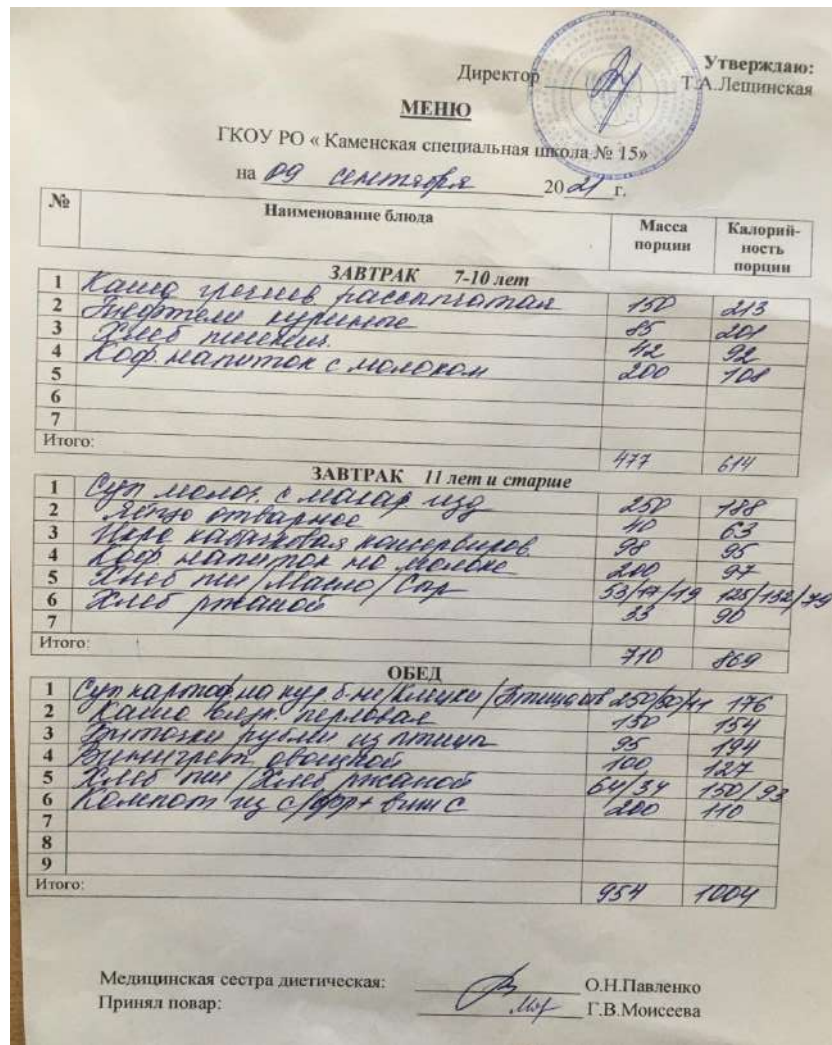 Утверждаю:
Директор Т.А.Лещинская
МЕНЮ
ГКОУ РО « Каменская специальная школа № 15»
на 09 сентября 2021 г.
№ Наименование блюда Масса порции Калорий-ность порции
ЗАВТРАК 7-10 лет
1 Каша гречнев. рассыпчатая 150 213
2 Тефтели куриные 85 201
3 Хлеб пшенич. 42 92
4 Коф. напиток с молоком 200 108
5
6
7
Итого: 477 614
ЗАВТРАК 11 лет и старше
1 Суп молоч. с макар. изд 250 188
2 Яйцо отварное 40 63
3 Икра кабачковая консервиров. 98 95
4 Коф. напиток на молоке 200 97
5 Хлеб пш/Масло/Сыр 53/17/19 125/132/79
6 Хлеб ржаной 33 90
7
Итого: 710 869
ОБЕД
1 Суп картоф. на кур б-не/Клецки/Птица отв 250/60/11 176
2 Каша вязк. перловая 150 154
3 Биточки рублен из птицы 95 194
4 Винигрет овощной 100 127
5 Хлеб пш/Хлеб ржаной 64/34 150/93
6 Компот из с/фр + вит С 200 110
7
8
9
Итого: 954 1004
Медицинская сестра диетическая: О.Н.Павленко
Принял повар: Г.В.Моисеева